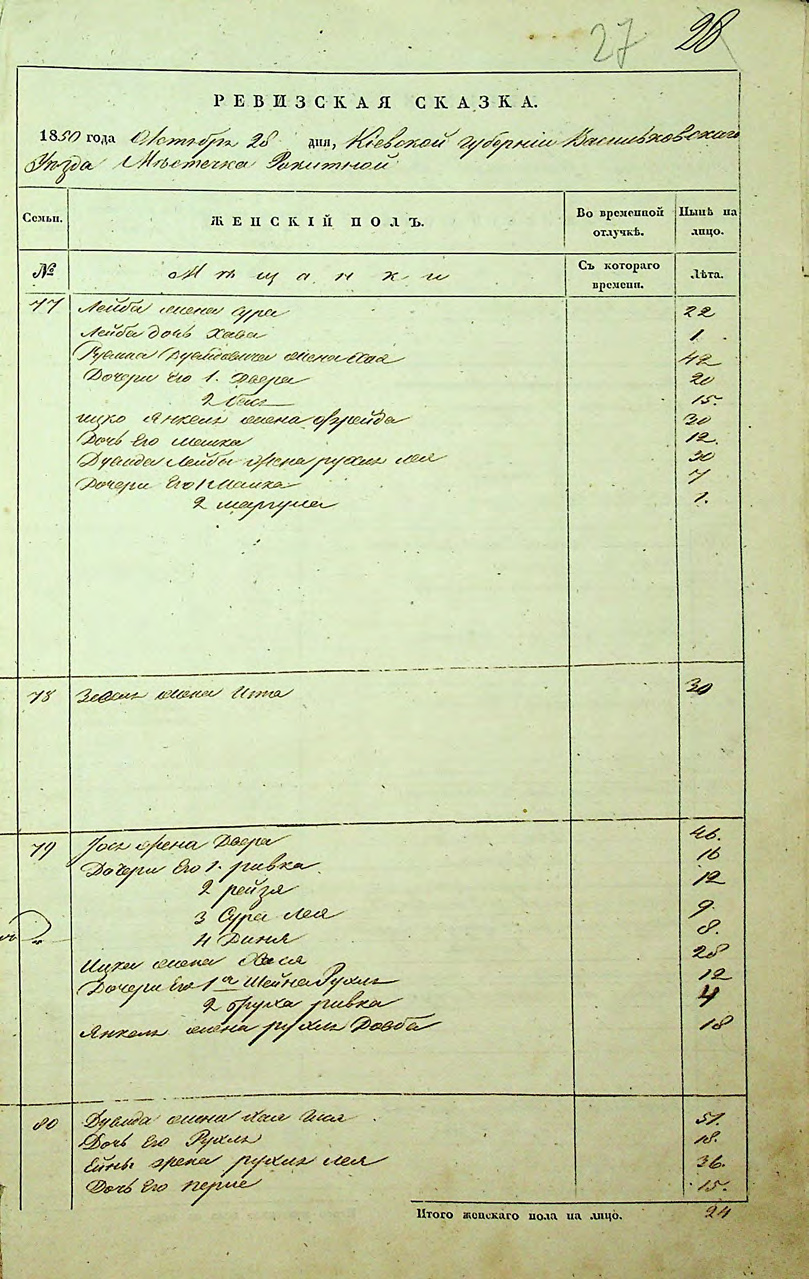 27 28
РЕВИЗСКАЯ СКАЗКА.
1850 года Октября 28 дня, Кіевской губерніи Васильковскаго
Уѣзда Мѣстечка Рокитной
Семьи. ЖЕНСКІЙ ПОЛЪ. Во временной отлучкѣ. Нынѣ на лицо.
№ Мѣщанки Съ котораго времени. Лѣта.
77 Лейба жена Сура 22
Лейба дочь Хава 1.
Рувина Дувидовича жена Хая 42
Дочери Его 1. Двера 20
2 15.
Ицко Янкель жена Фрейда 30
Дочь Его Малка 12.
Дувида Лейбы жена рухль лея 30
Дочери Его 1 Малка 7
2 маргула 1.
78 жена Ита 30
79 Іось жена Двера 46.
Дочери Его 1. ривка 16
2 рейзя 12
3 Сура лея 9.
4 Диня 8.
Ицка жена Хася 28
Дочери Его 1я Шейна Рухль 12
2 бруха ривка 4
Янкель жена рухль Довба 18
80 Дувида жена Хая 51.
Дочь Его Рухль 18.
жена рухль лея 36.
Дочь Его перле 15.
Итого женскаго пола на лицо. 24